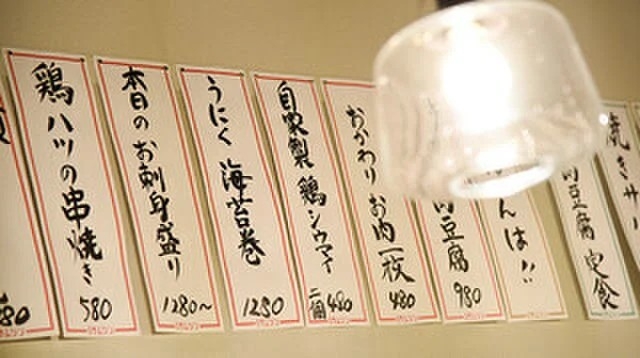 鶏ハツの串焼き 580
本日のお刺身盛り 1280~
うにく 海苔巻 1280
自家製 鶏シウマイ 二個 480
おかわり お肉一枚 480
肉豆腐 980
んは!!
肉豆腐 定食
焼き